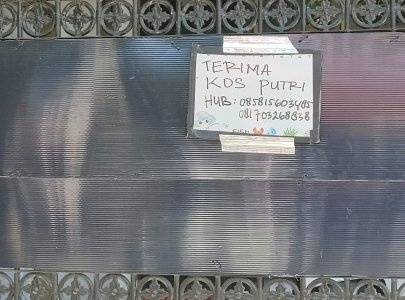 TERIMA
KOS PUTRI
HUB: 085815603485
081703268838
FISH